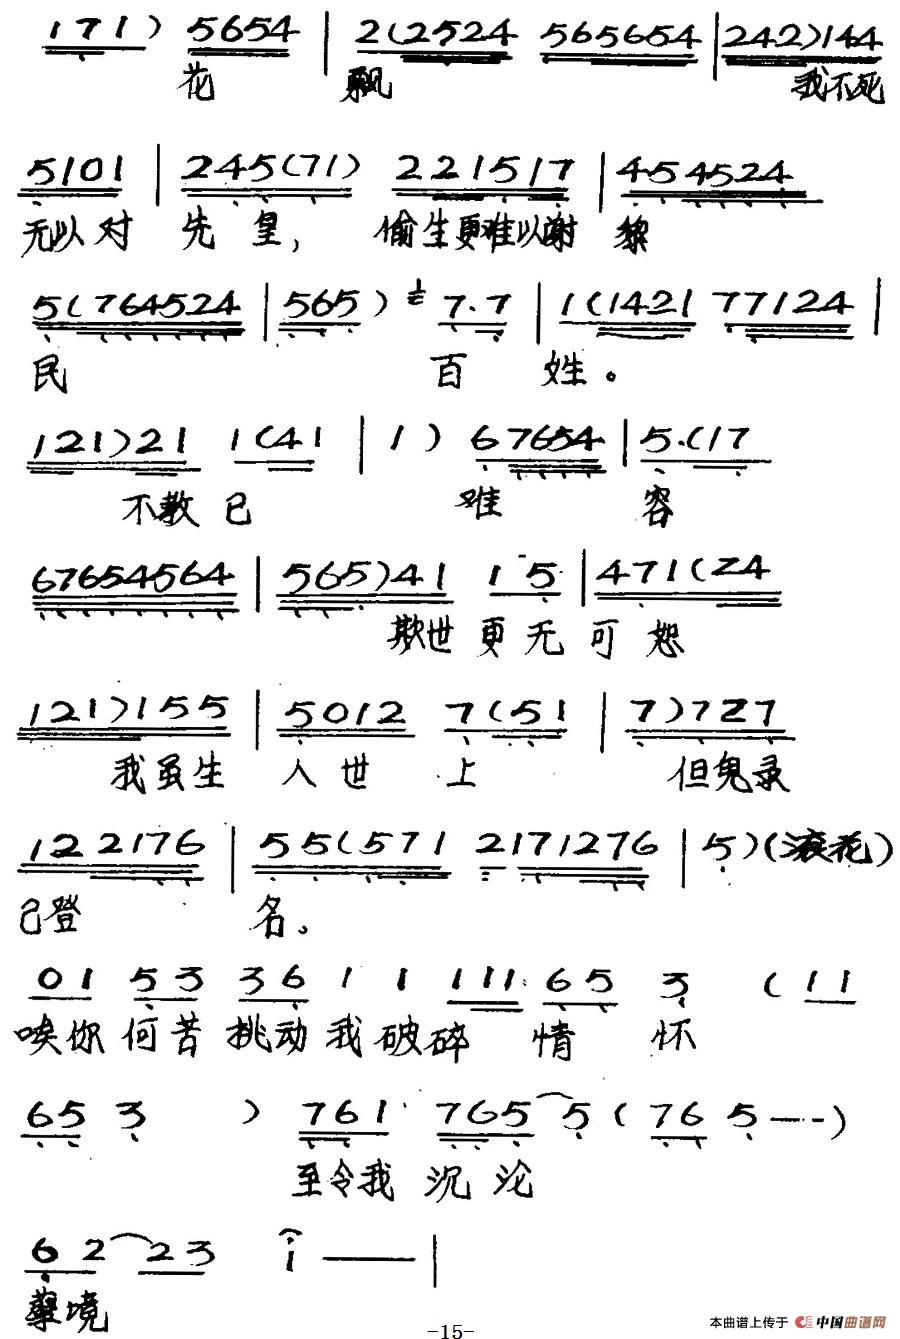 171) 5654 | 2(2524 565654 | 242)144
花 飘 我不死
5101 | 245(71) 221517 | 454524
无以对 先 皇, 偷生更难以谢 黎
5(764524 | 565) 7.7 | 1(1421 77124 |
民 百 姓。
121)21 1(41 | 1) 67654 | 5.(17
不教己 难 容
67654564 | 565)41 15 | 471(24
欺世更无可恕
121)155 | 5012 7(51 | 7)727
我虽生 人世 上 但鬼录
122176 | 55(571 2171276 | 5)(滚花)
已登 名。
01 53 36 1 1 111 65 3 (11
唉你何苦挑动我破碎 情 怀
65 3 ) 761 765 5(76 5——)
至令我 沉沦
62 23 1 —— |
孽境
-15-
本曲谱上传于 中国曲谱网